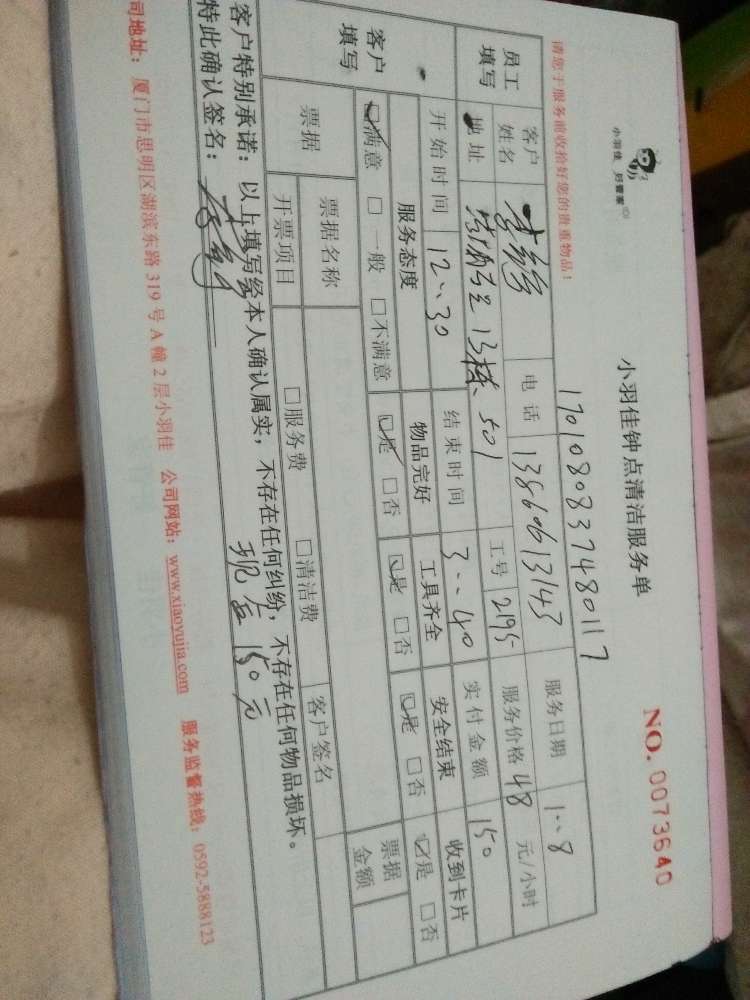 小羽佳 好管家
小羽佳钟点清洁服务单
NO. 0073640
请您于服务前收拾好您的贵重物品!
1701080837480117
员工填写
客户姓名 李 电话 13860613143 服务日期 1..8
地址 13栋、501 工号 2195 服务价格 48 元/小时
开始时间 12..30 结束时间 3..40 实付金额 150
客户填写
服务态度 物品完好 工具齐全 安全结束 收到卡片
☑满意 □一般 □不满意 ☑是 □否 ☑是 □否 ☑是 □否 ☑是 □否
票据 票据名称 票据金额
开票项目 □服务费 □清洁费 客户签名
客户特别承诺:以上填写经本人确认属实,不存在任何纠纷,不存在任何物品损坏。
特此确认签名: 现金150元
司地址: 厦门市思明区湖滨东路 319 号 A 幢 2 层小羽佳 公司网站: www.xiaoyujia.com 服务监督热线: 0592-5888123